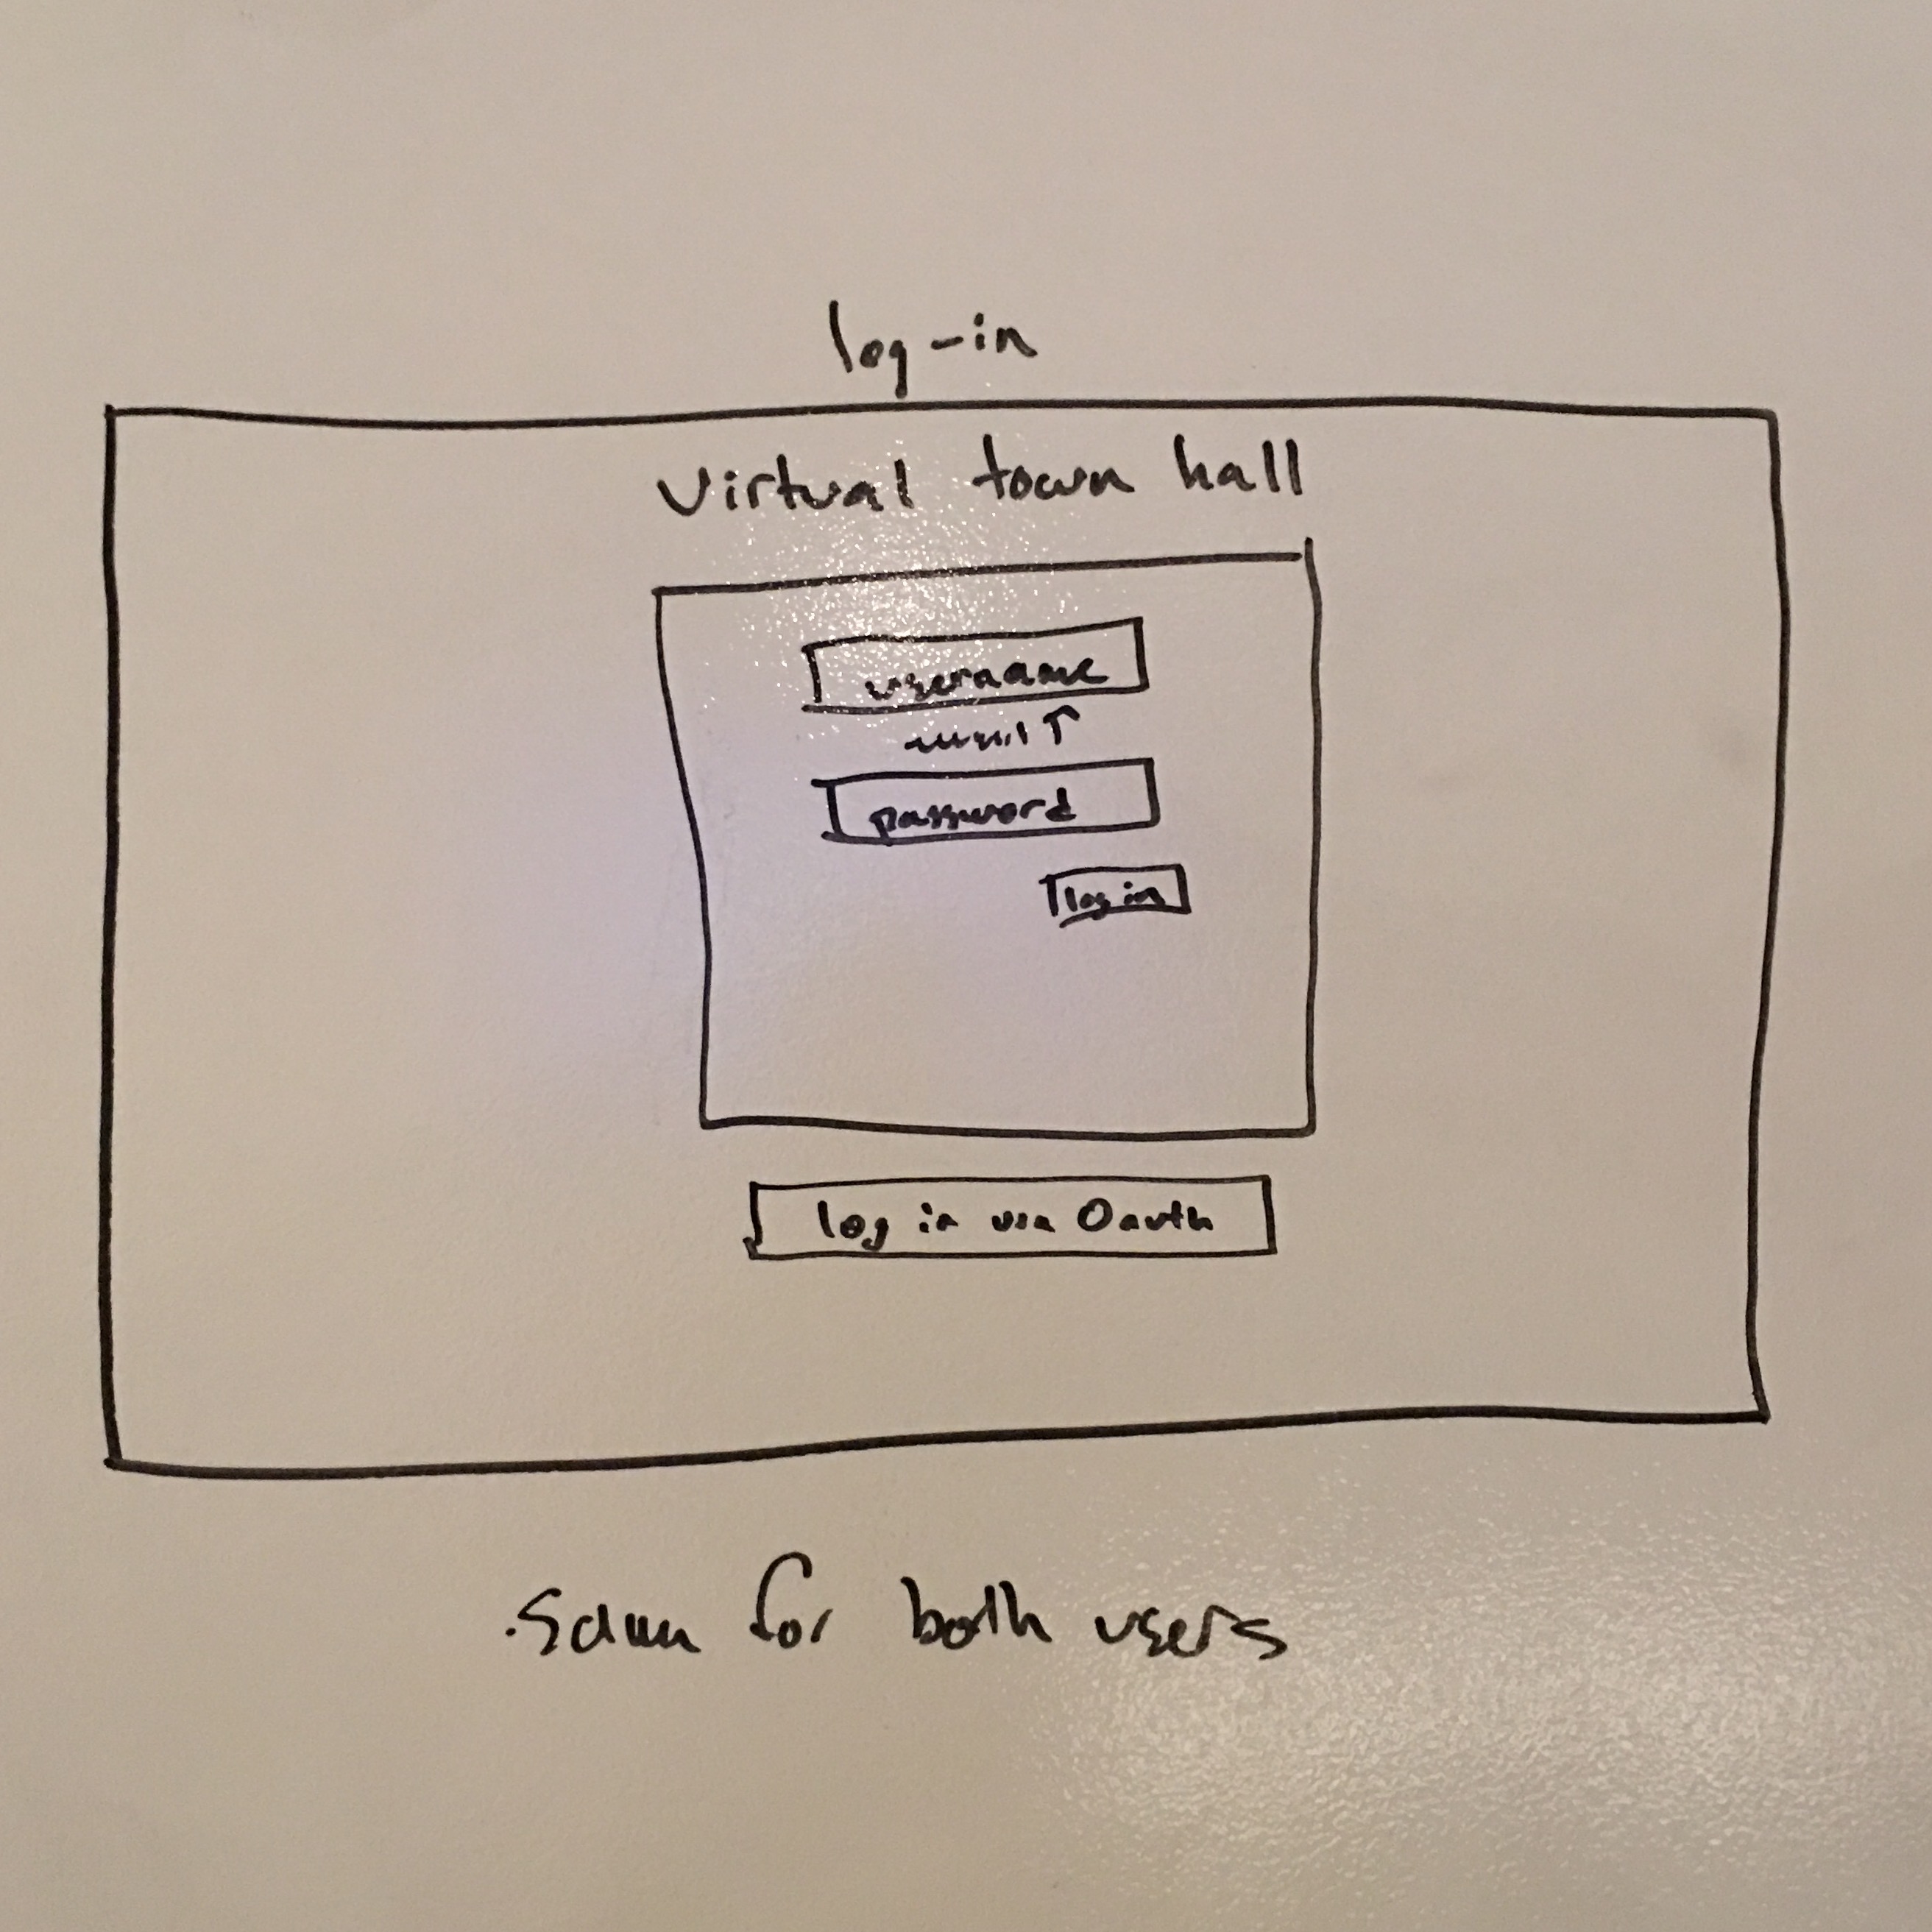 log-in
Virtual town hall
username
email ↑
password
log in
log in via Oauth
. Same for both users